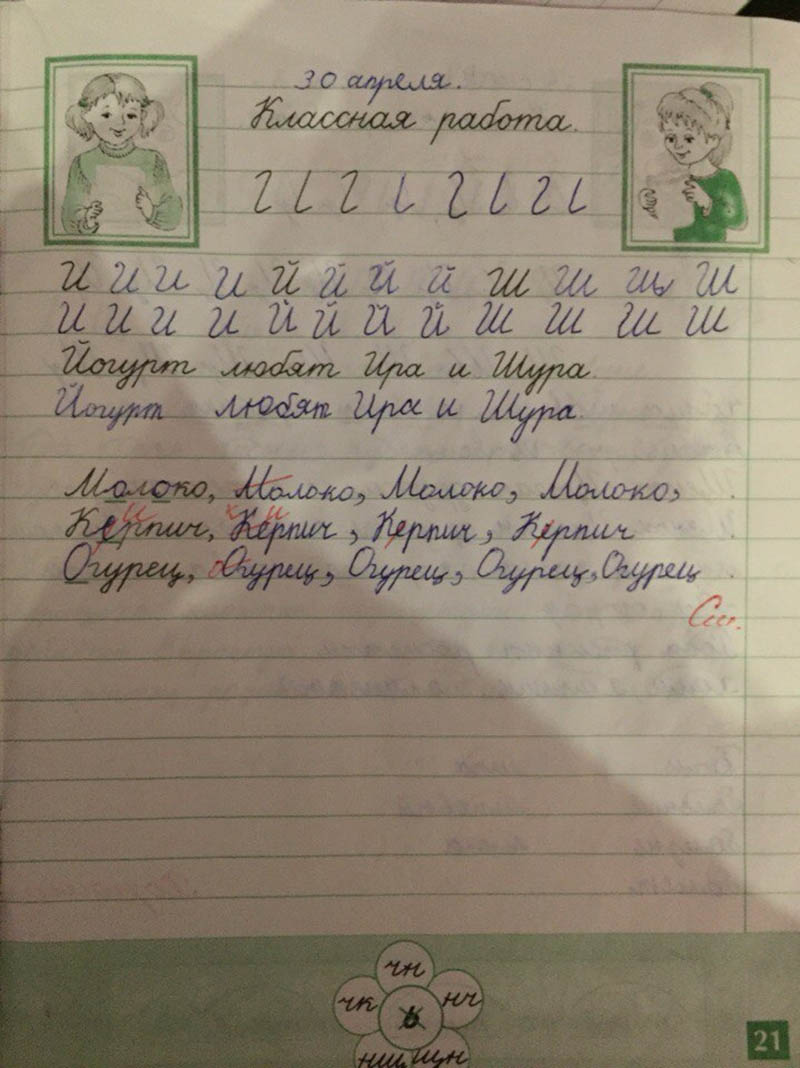 30 апреля.
Классная работа.
И И И И Й Й Й Й Ш Ш Ш Ш
И И И И Й Й Й Й Ш Ш Ш Ш
Йогурт любят Ира и Шура.
Йогурт любят Ира и Шура.
Молоко, Молоко, Молоко, Молоко,
и и
Керпич, Керпич, Керпич, Керпич
Огурец, Огурец, Огурец, Огурец, Огурец
См.
чн
чк ь нч
нщ щн
21